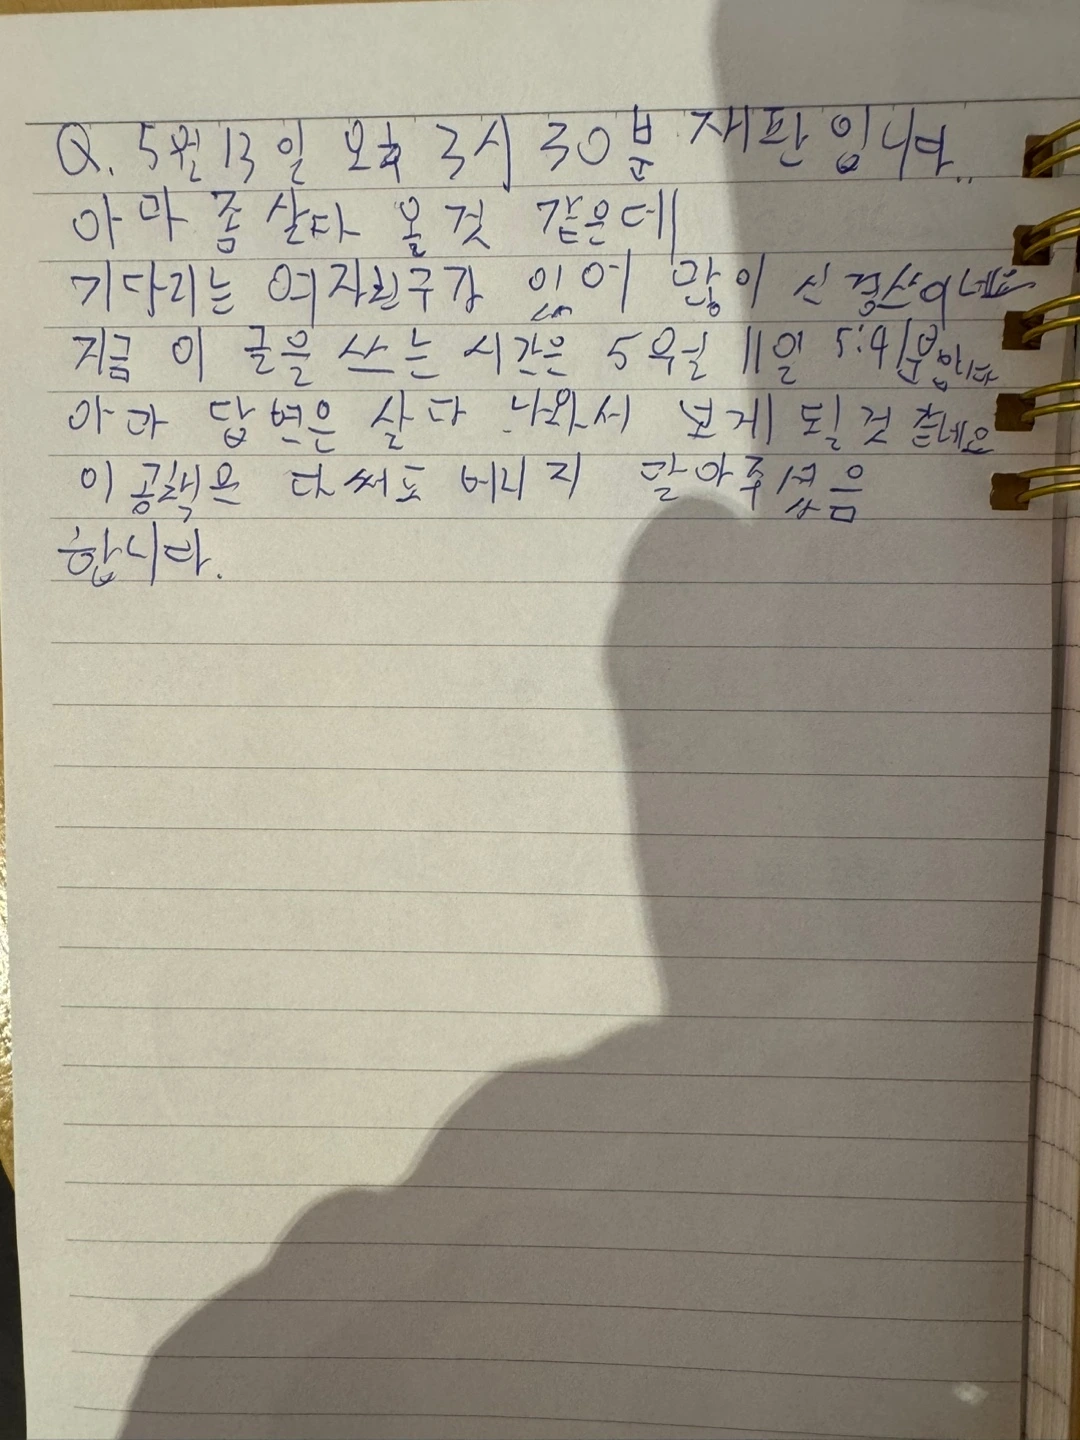 Q. 5월 13일 오후 3시 30분 재판입니다..
아마 좀 살다 올 것 같은데
기다리는 여자친구가 있어 많이 신경쓰이네요
지금 이 글을 쓰는 시간은 5우월 11일 5:41분입니다
아마 답변은 살다 나와서 보게 될 것 같네요
이 공책은 다써도 버리지 말아주셨음
합니다.